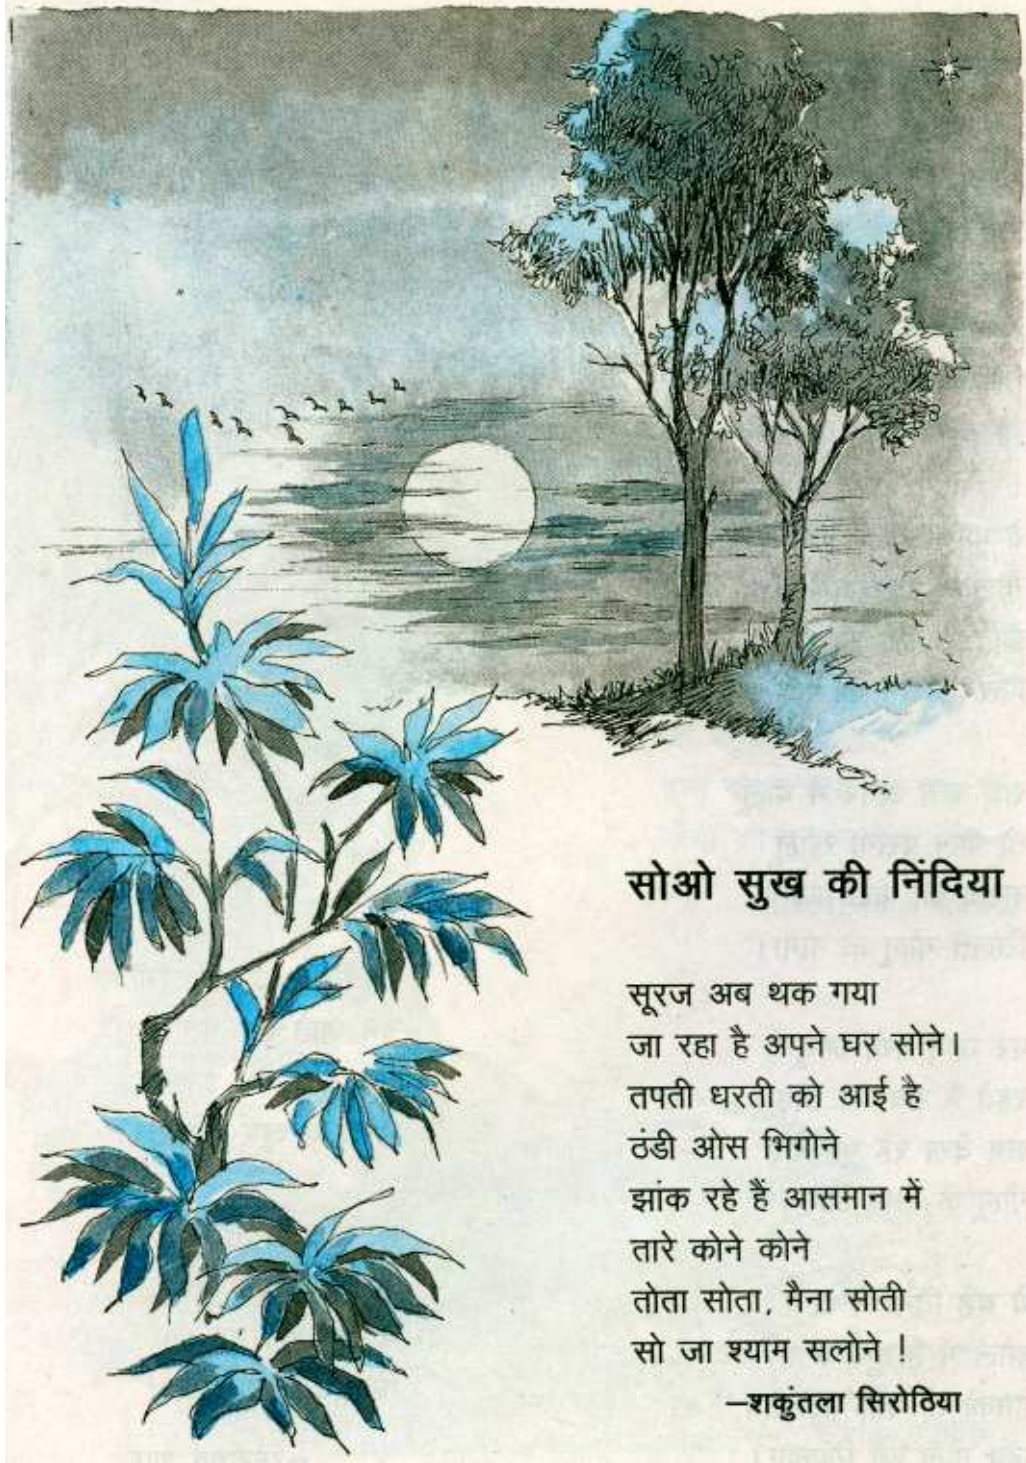 सोओ सुख की निंदिया
सूरज अब थक गया
जा रहा है अपने घर सोने।
तपती धरती को आई है
ठंडी ओस भिगोने
झांक रहे हैं आसमान में
तारे कोने कोने
तोता सोता, मैना सोती
सो जा श्याम सलोने !
–शकुंतला सिरोठिया